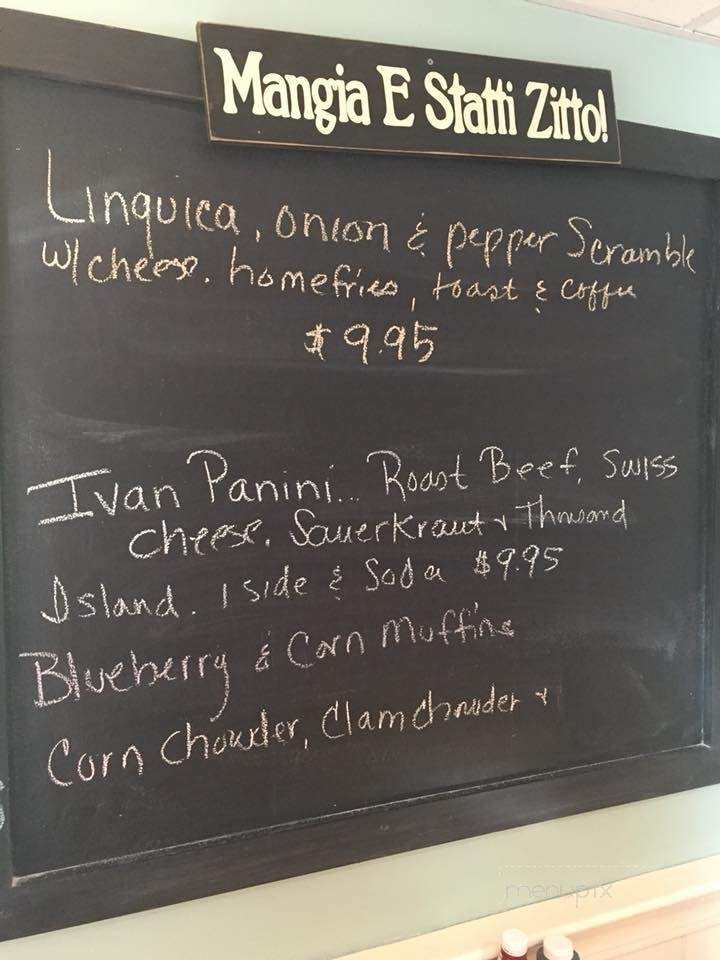 Mangia E Statti Zitto!
Linguica, onion & pepper Scramble
w/cheese. homefries, toast & coffee
$9.95
Ivan Panini... Roast Beef, Swiss
cheese. Sauerkraut & Thousand
Island. 1 side & Soda $9.95
Blueberry & Corn Muffins
Corn Chowder, Clam Chowder &
menupix